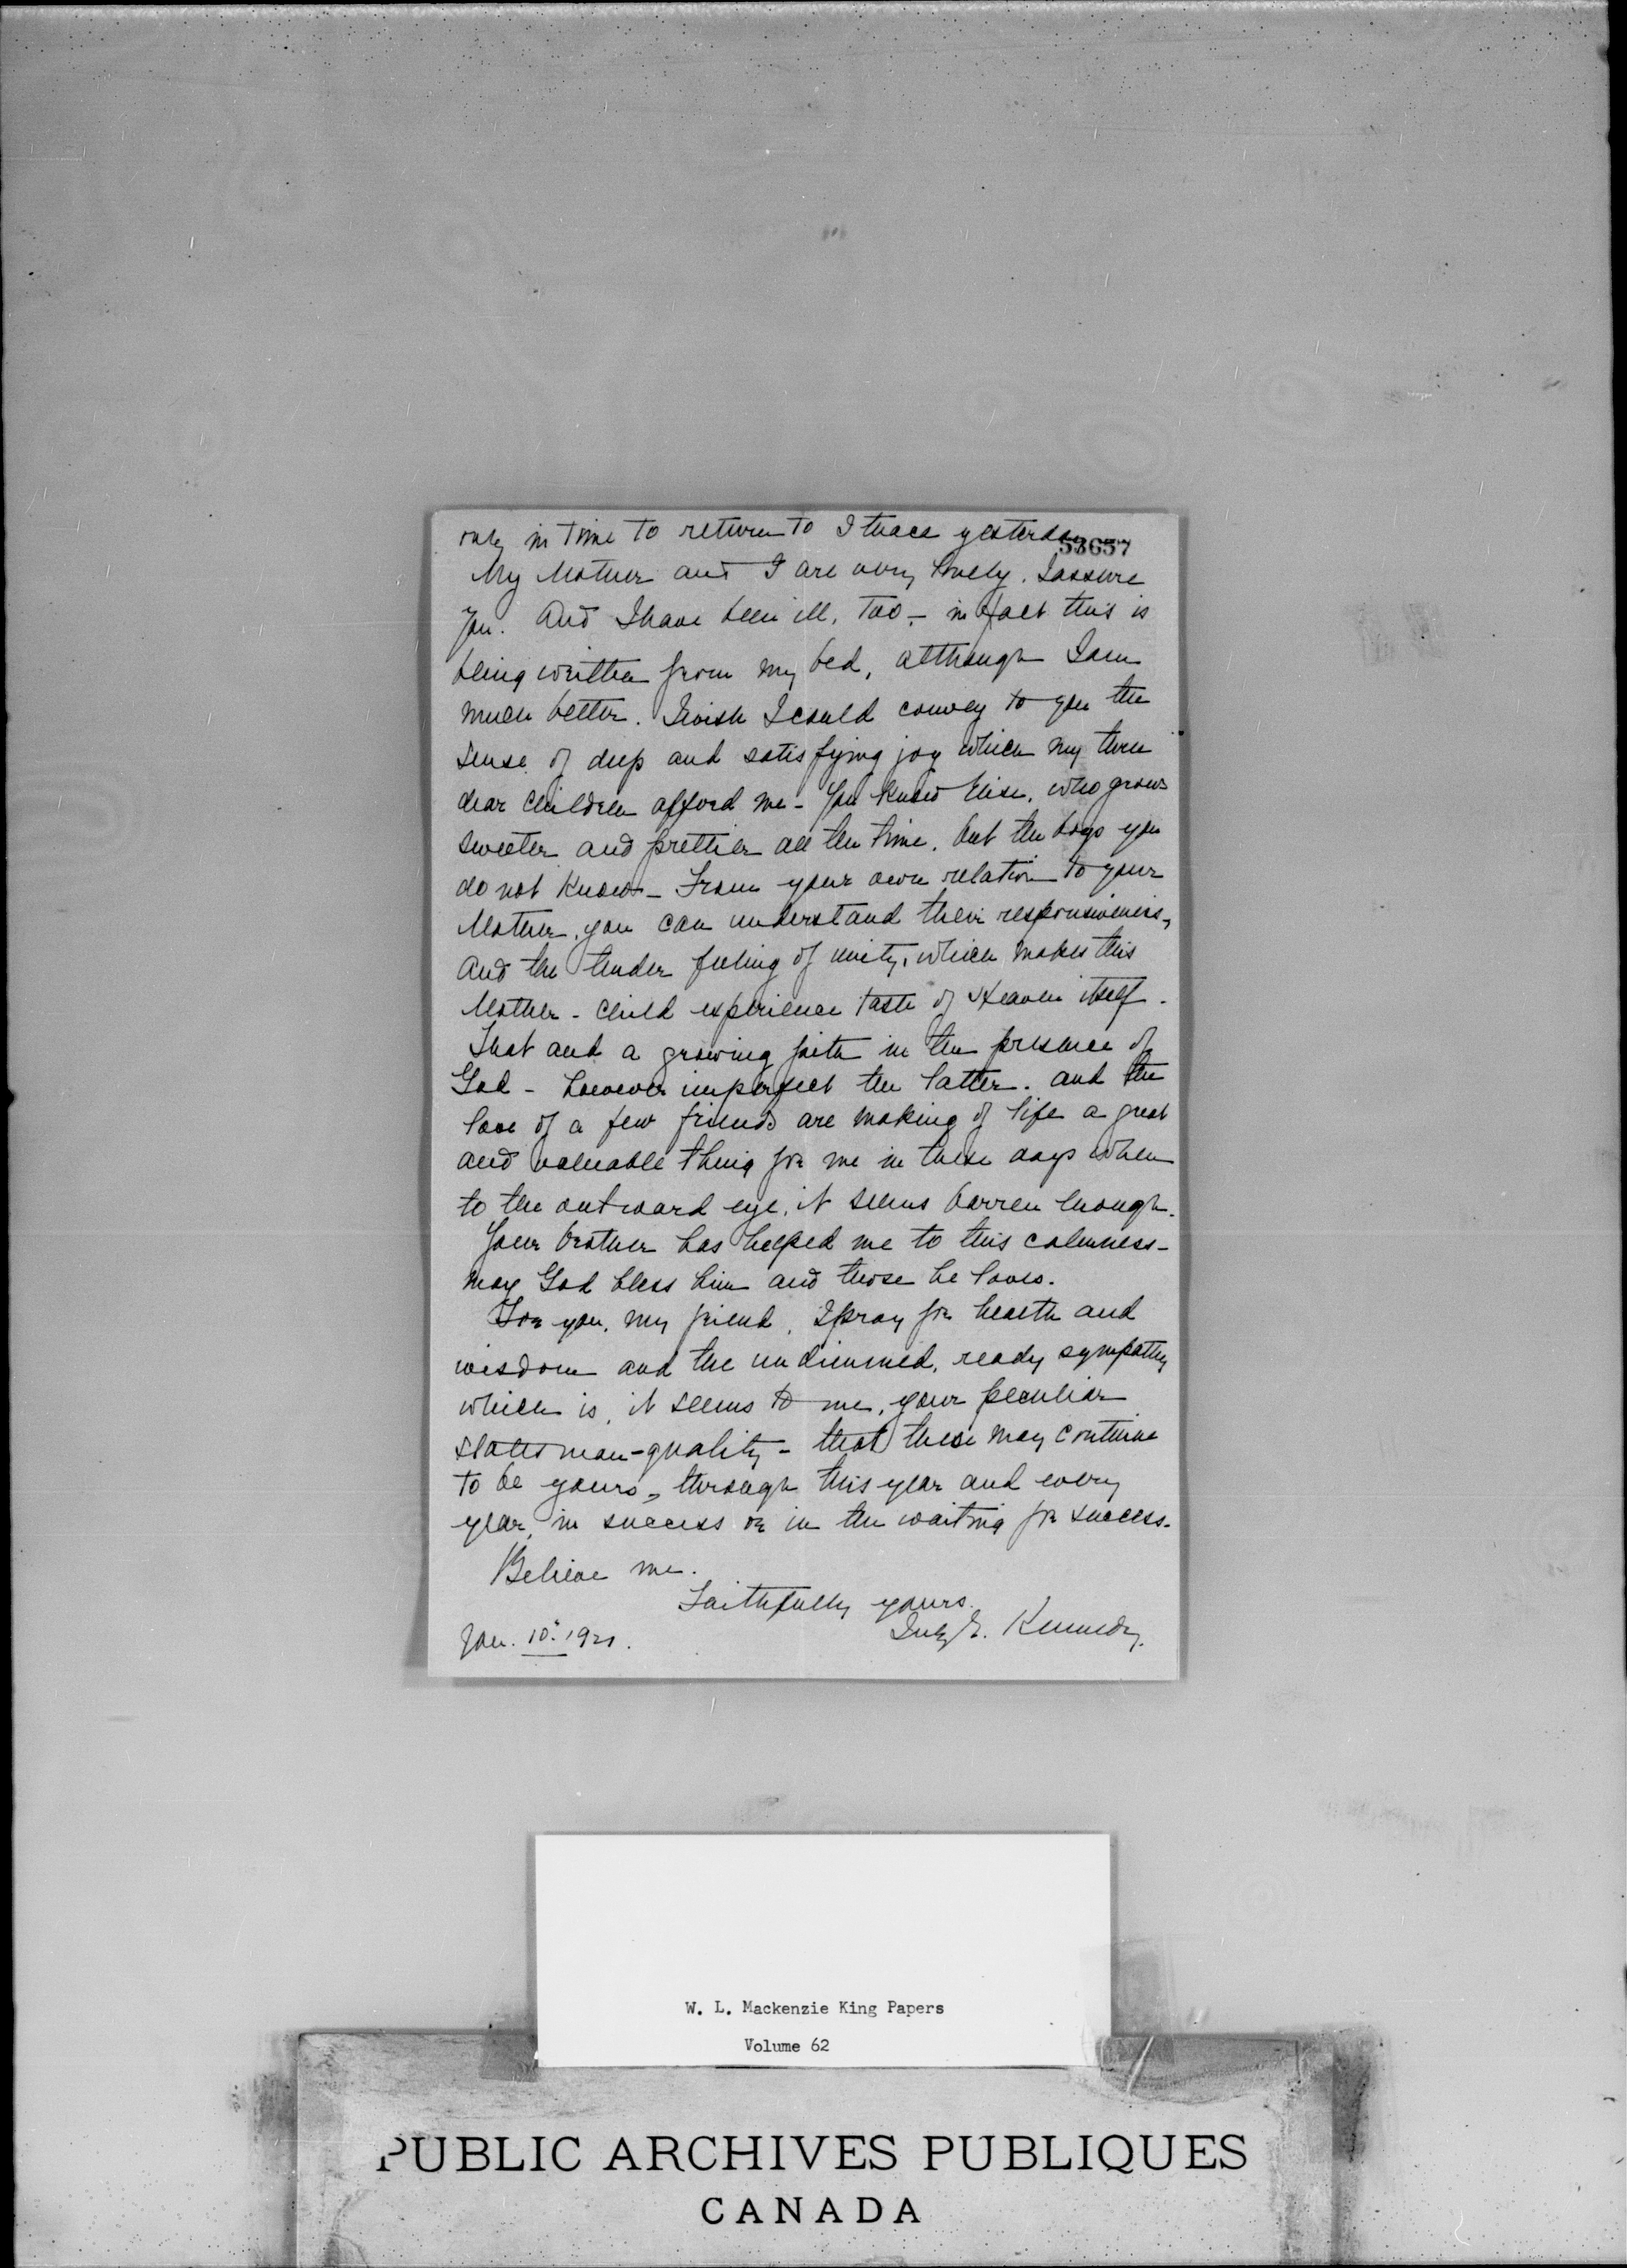 only in time to return to Ithaca yesterday
53657
My Mother and I are very lonely. I assure
you. And I have been ill, too – in fact this is
being written from my bed, although I am
much better. I wish I could convey to you the
sense of deep and satisfying joy which my three
dear children afford me – You know Elise, who grows
sweeter and prettier all the time, but the boys you
do not know – From your own relation to your
Mother, you can understand their responsiveness,
and the tender feeling of unity, which makes this
Mother-child experience taste of Heaven itself.
That and a growing faith in the presence of
God – however imperfect the latter. and the
love of a few friends are making of life a great
and valuable thing for me in these days when
to the outward eye, it seems barren enough.
Your brother has helped me to this calmness –
may God bless him and those he loves.
For you, my friend, I pray for health and
wisdom and the undimmed, ready sympathy
which is, it seems to me, your peculiar
statesman-quality – that these may continue
to be yours, through this year and every
year, in success or in the waiting for success.
Believe me.
Faithfully yours.
Kennedy.
Jan. 10. 1921.
W. L. Mackenzie King Papers
Volume 62
PUBLIC ARCHIVES PUBLIQUES
CANADA